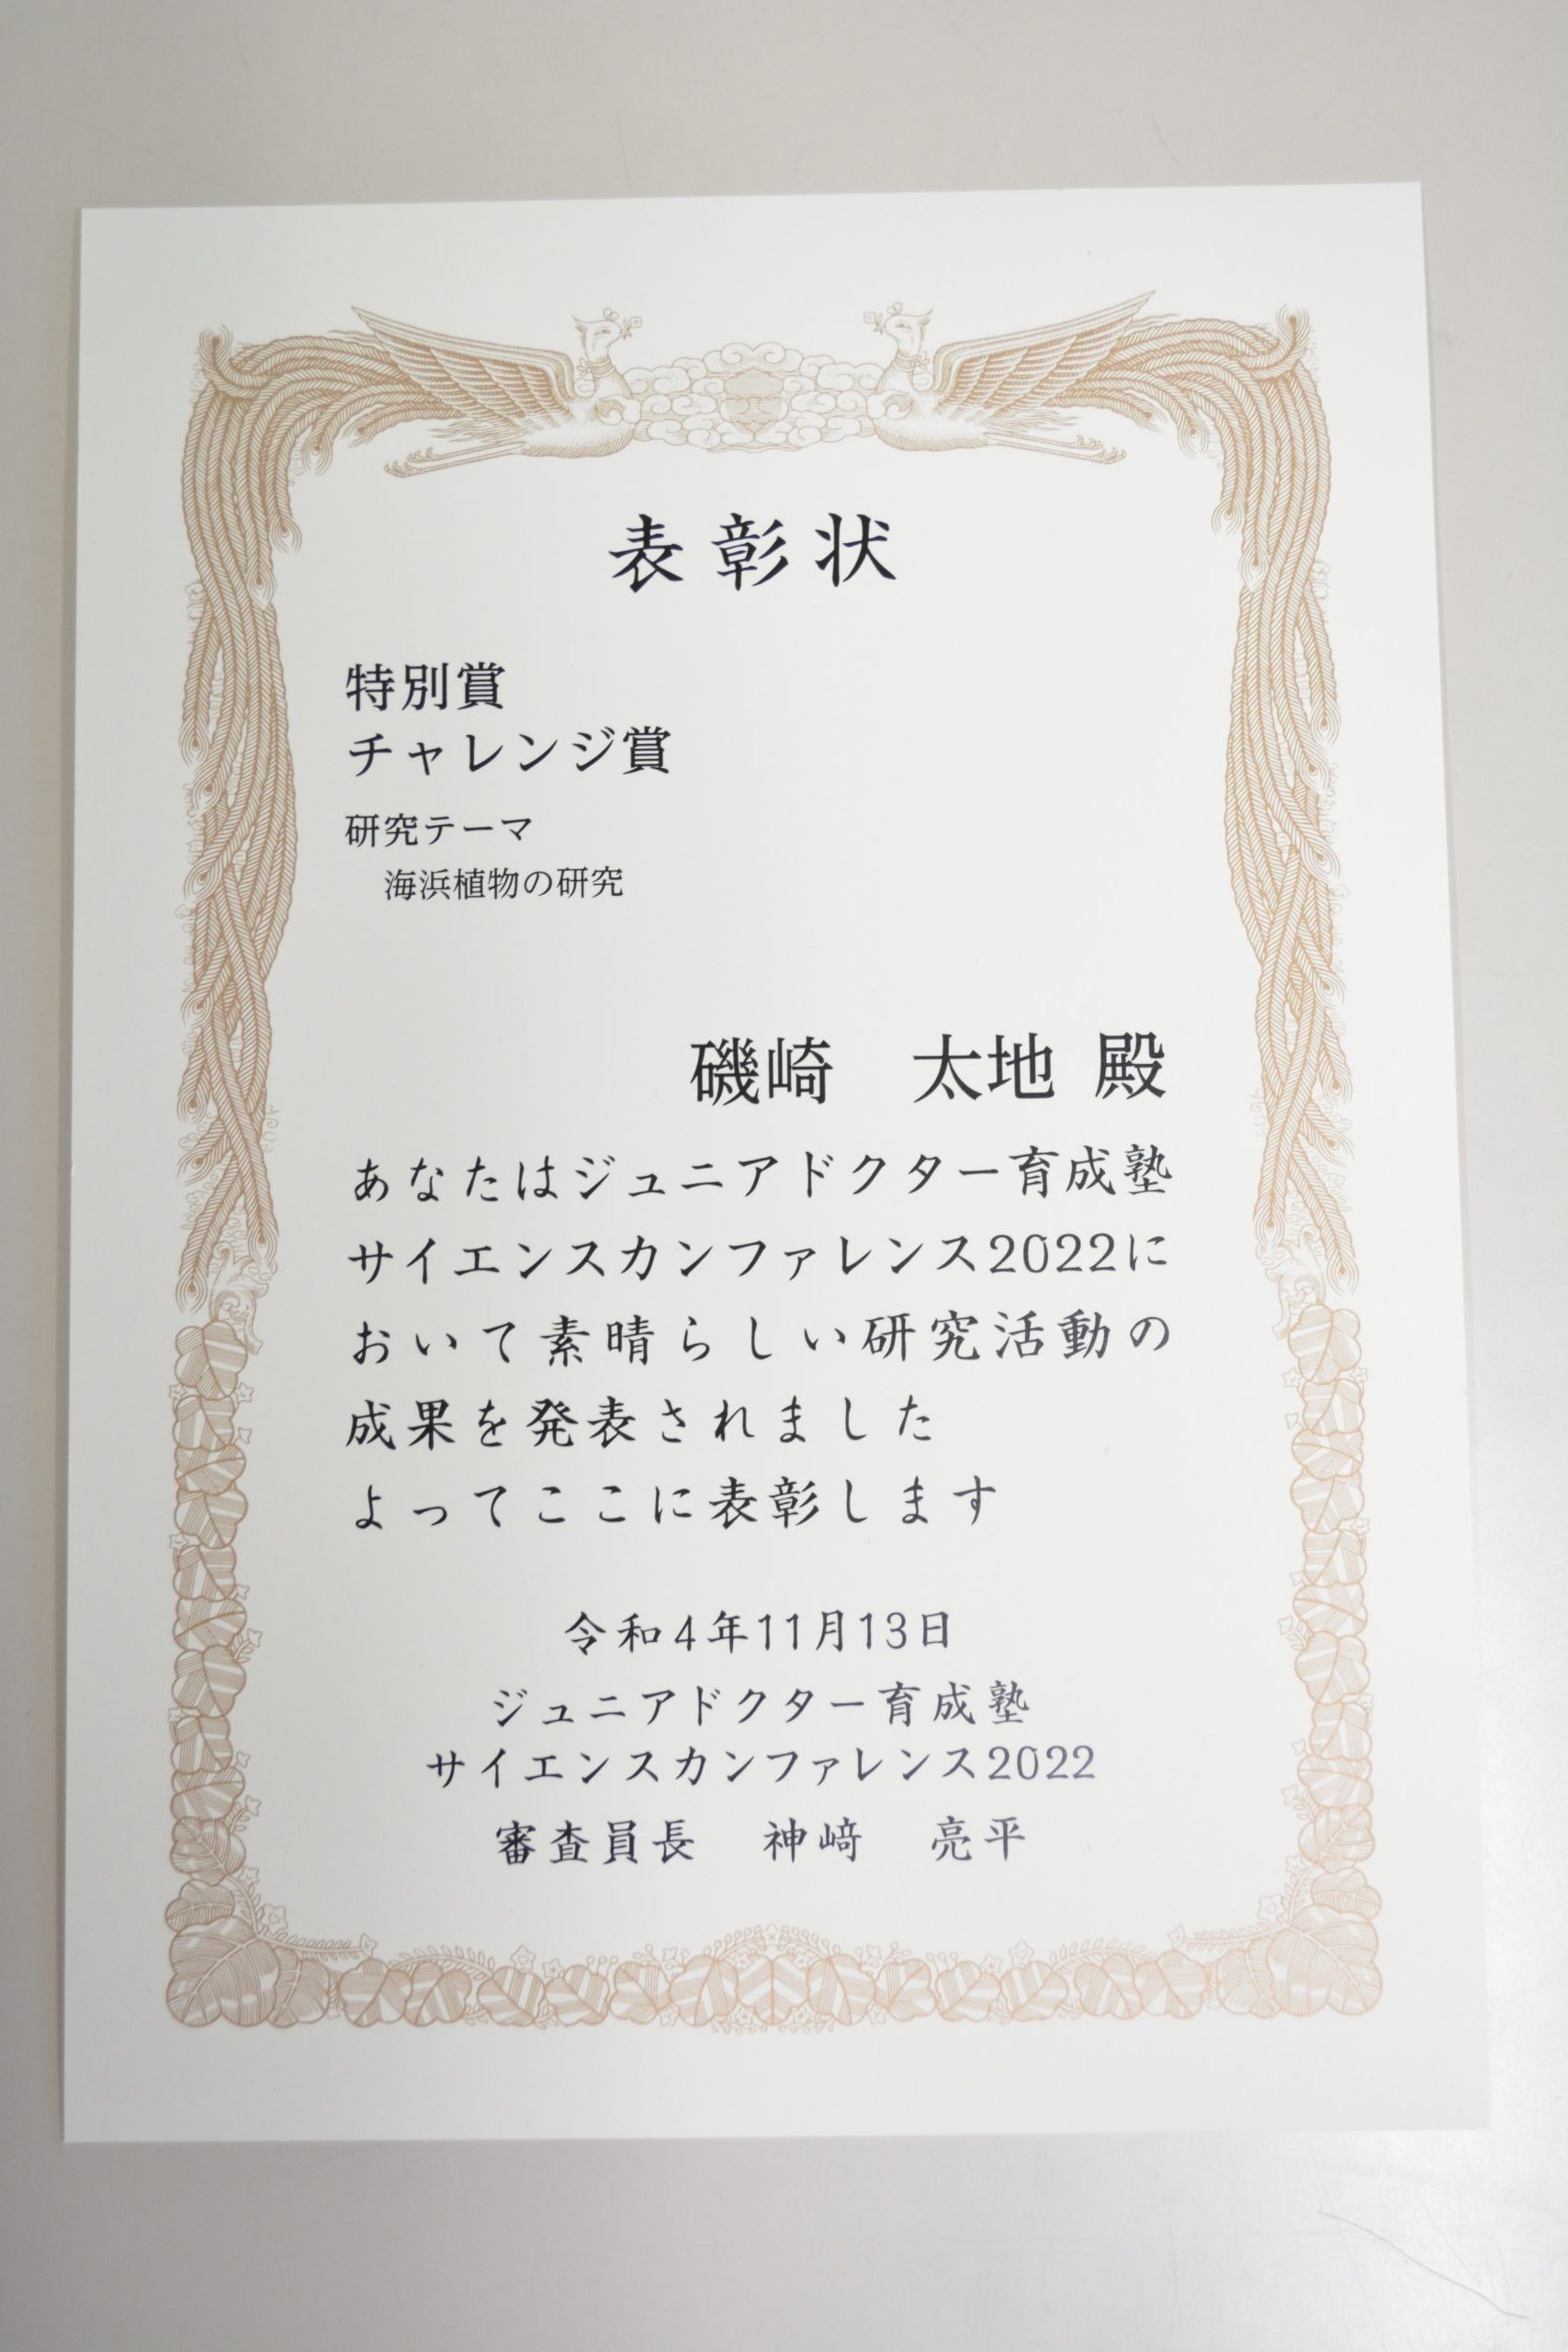 表彰状
特別賞
チャレンジ賞
研究テーマ
海浜植物の研究
磯崎 太地 殿
あなたはジュニアドクター育成塾
サイエンスカンファレンス2022に
おいて素晴らしい研究活動の
成果を発表されました
よってここに表彰します
令和4年11月13日
ジュニアドクター育成塾
サイエンスカンファレンス2022
審査員長 神﨑 亮平